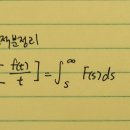 적분정리
[f(t)/t] = ∫_s^∞ F(s)ds